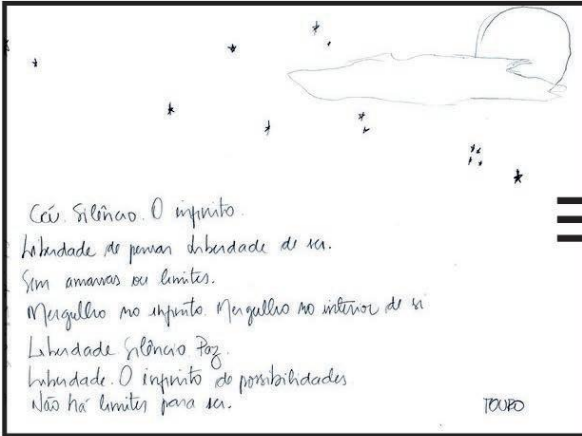 Céu. Silêncio. O infinito.
Liberdade de pensar Liberdade de ser.
Sem amarras ou limites.
Mergulho no infinito. Mergulho no interior de si
Liberdade Silêncio Paz.
Liberdade. O infinito de possibilidades
Não há limites para ser.
TOURO